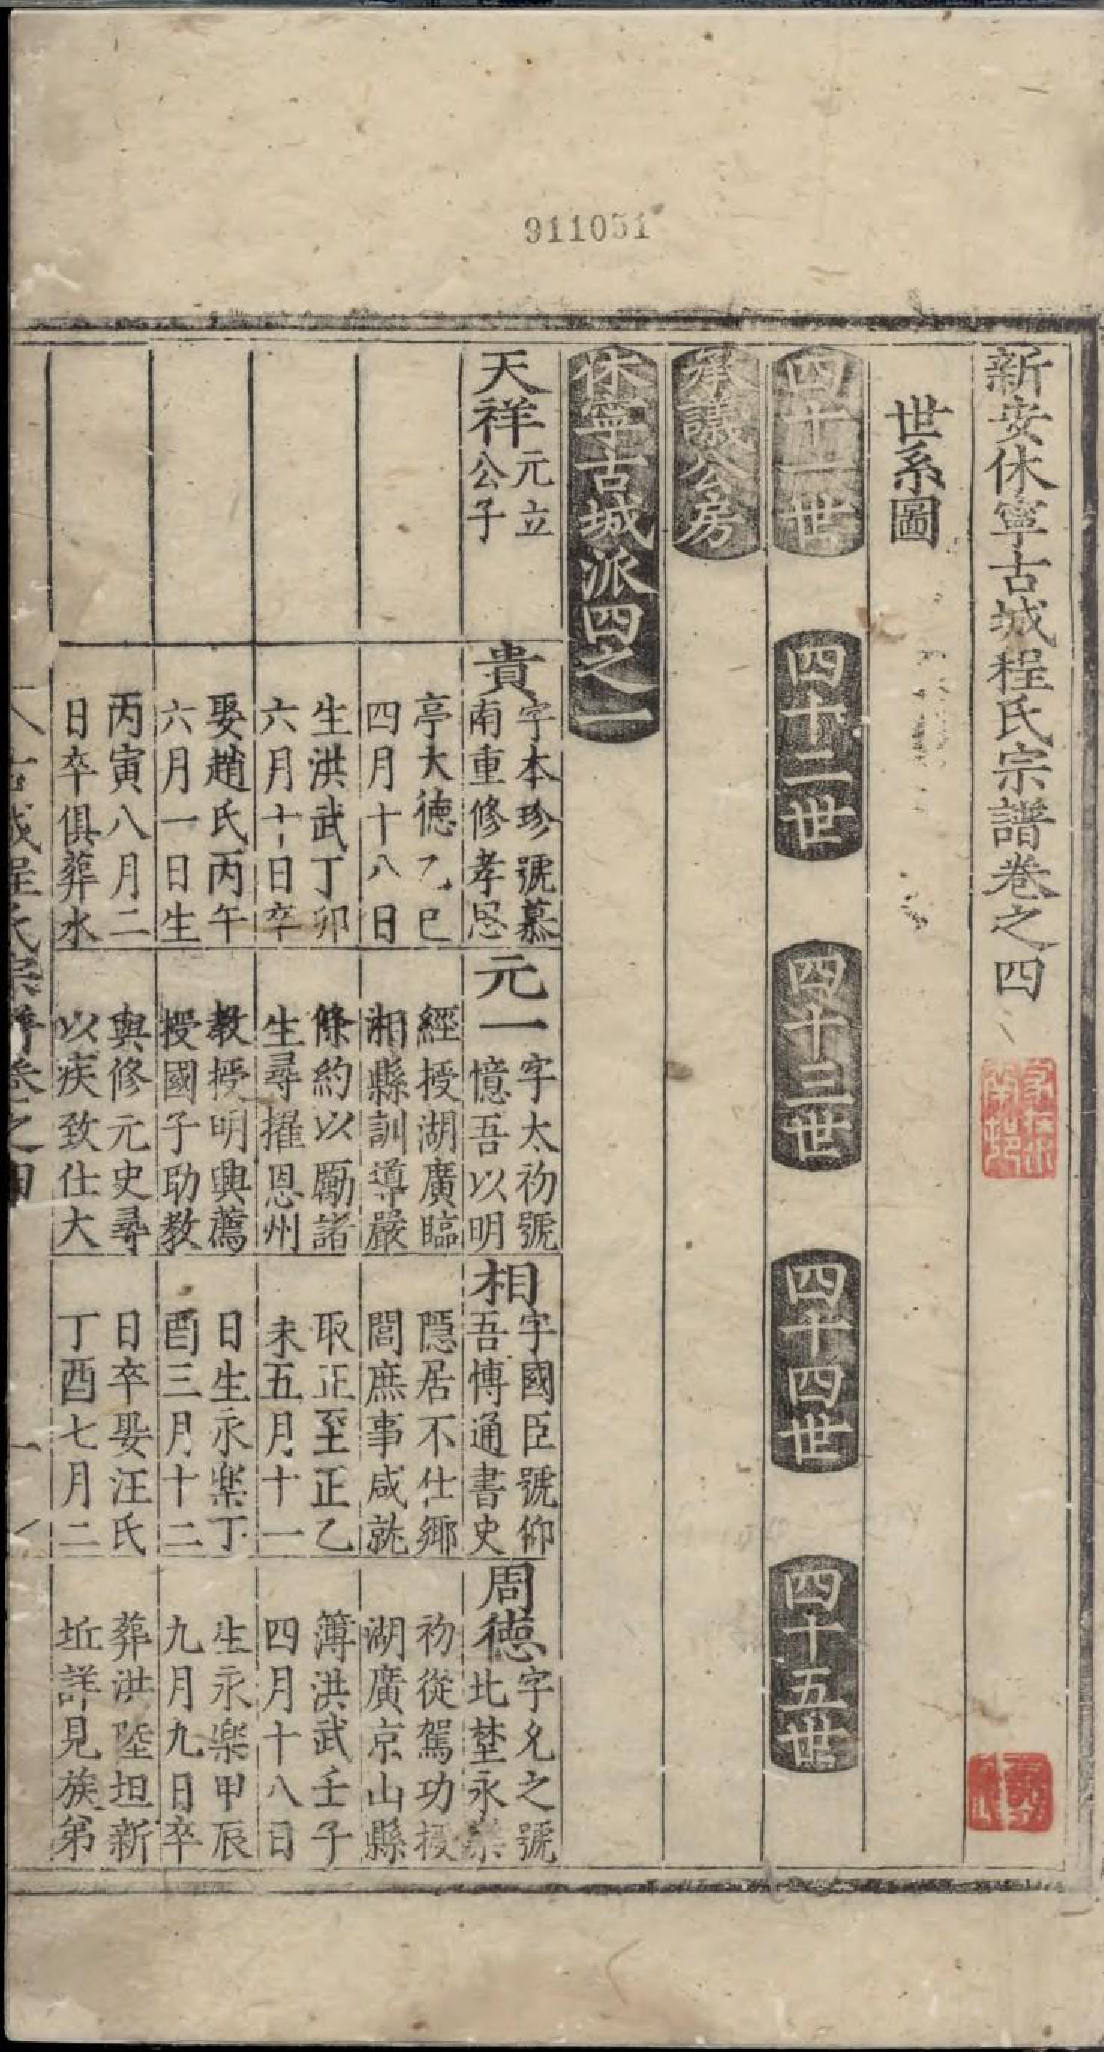 911051
新安休寧古城程氏宗譜卷之四
世系圖
四十一世
四十二世
四十三世
四十四世
四十五世
承議公房
休寧古城派四之一
天祥
元立
公子
貴
字本珍號慕
南重修孝思
亭大德乙巳
四月十八日
生洪武丁卯
六月十日卒
娶趙氏丙午
六月一日生
丙寅八月二
日卒俱葬水
元一
字太初號
憶吾以明
經授湖廣臨
湘縣訓導嚴
條約以勵諸
生尋擢恩州
教授明興薦
授國子助教
與修元史尋
以疾致仕大
相
字國臣號仰
吾博通書史
隱居不仕鄉
閭庶事咸就
取正至正乙
未五月十一
日生永樂丁
酉三月十二
日卒娶汪氏
丁酉七月二
周德
字允之號
北埜永樂
初從駕功授
湖廣京山縣
簿洪武壬子
四月十八日
生永樂甲辰
九月九日卒
葬洪陸坦新
坵詳見族弟
古城程氏宗譜卷之四
一